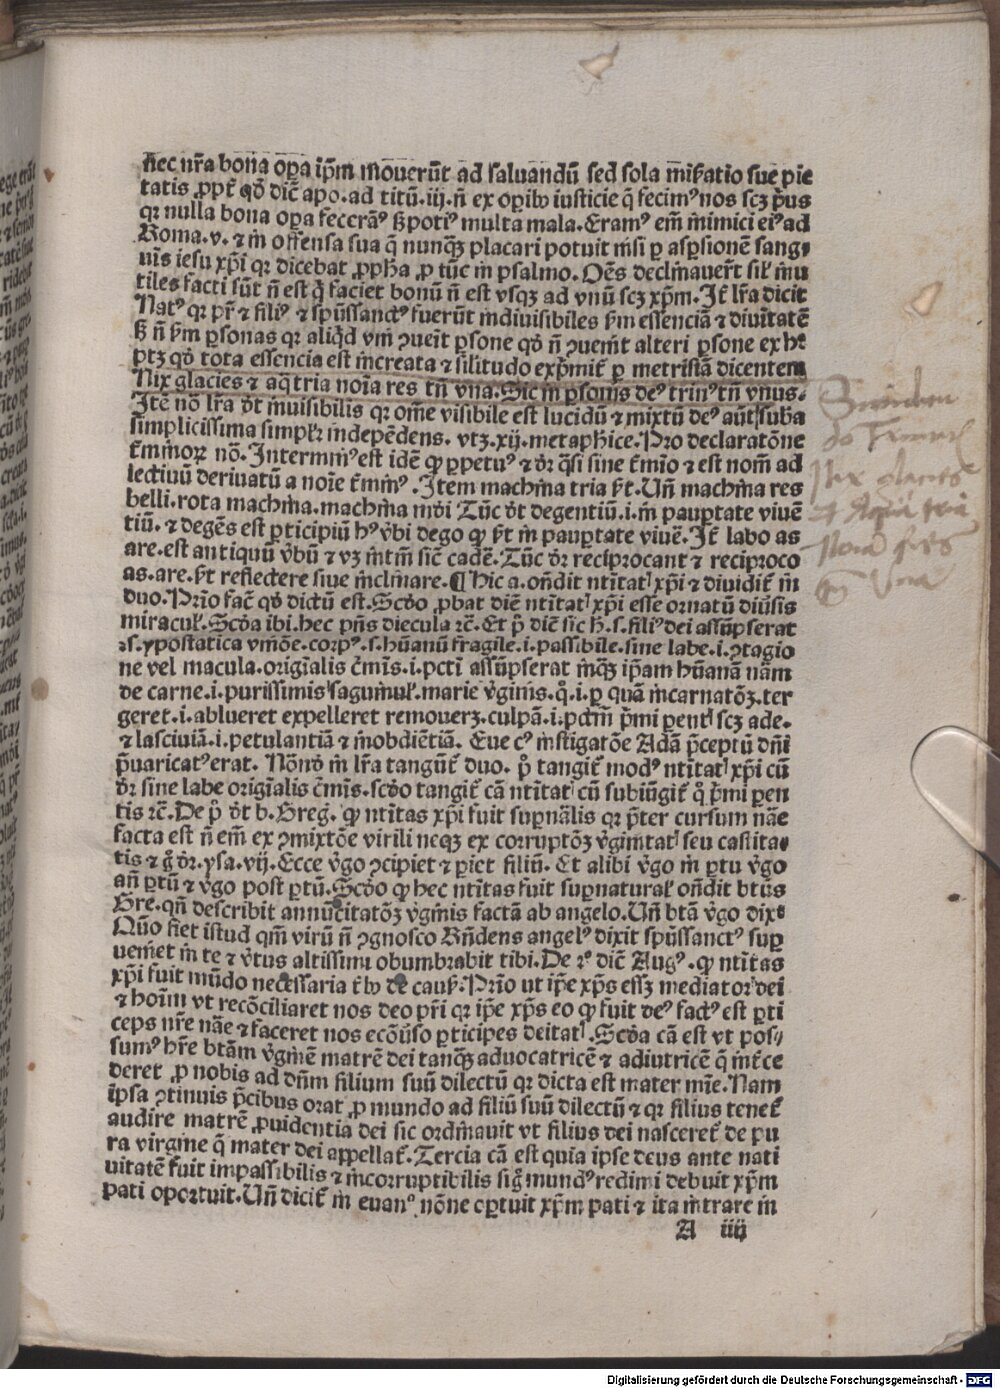 nec nr̄a bona oꝑa ip̄m mouerūt ad saluandū sed sola miẜatio sue pie
tatis ꝓpẗ qđ dic̄ apo. ad titū. iij. n̄ ex oꝑibꝰ iusticie q̄ fecimꝰ nos scꝫ pͥus
qꝛ nulla bona oꝑa fecerāꝰ ẞpotiꝰ multa mala. Eramꝰ em̄ inimici eiꝰ ad
Roma. v. ⁊ in offensa sua q̄ nunqꝫ placari potuit nisi ꝑ asꝑsionē sangu
nis iesu xp̄i qꝛ dicebat ꝓpħa ꝓ tūc in psalmo. Oēs declinauer̄t sil̄ inu
tiles facti sūt n̄ est q̄ faciet bonū n̄ est vsqꝫ ad vnū scꝫ xp̄m. Jt̄ lr̄a dicit
Natꝰ qꝛ pr̄ ⁊ filiꝰ ⁊ sp̄ussanctꝰ fuerūt indiuisibiles ẜm essenciā ⁊ diuitatē
ẞ n̄ ẜm ꝑsonas qꝛ aliq̄d vni ꝯueīt ꝑsone qđ n̄ ꝯuenit alteri ꝑsone ex hͦ
ptꝫ qđ tota essencia est increata ⁊ silitudo exp̄mit̄ ꝑ metristā dicentem
Nix glacies ⁊ aq̄ tria noīa res tn̄ vna. Sic in ꝑsonis deꝰ trinꝰ tn̄ vnus.
Jtē nō lr̄a dr̄t inuisibilis qꝛ om̄e visibile est lucidū ⁊ mixtū deꝰ aūt suba
simplicissima simplr̄ indepēdens. vtꝫ. xij. metaphice. Pro declaratōne
t̄minoꝝ nō. Jnterminꝰ est idē qđ ꝑpetuꝰ ⁊ dr̄ q̄si sine t̄mio ⁊ est nom̄ ad
lectiuū deriuatū a noīe t̄minꝰ. Jtem machina tria ẜt. Vn̄ machina res
belli. rota machina. machina mōi Tūc dr̄t degentiū. i. in pauꝑtate viuē
tiū. ⁊ degēs est ꝑticipiū hꝰ v̄bi dego qđ ẜt in pauꝑtate viuē. Jt̄ labo as
are. est antiquū v̄bū ⁊ vꝫ intm̄ sic̄ cadē. Tūc dr̄ reciprocant ⁊ reciproco
as. are. ẜt reflectere siue inclinare. ¶ Hic a. ondit ntītatꝭ xp̄i ⁊ diuidit̄ in
duo. Prīo fac̄ qđ dictū est. Scđo ꝓbat diē ntītatꝭ xp̄i esse ornatū diūsis
miracul̄. Scđa ibi. hec pn̄s diecula ꝛc̄. Et pͥ diē sic ħ. s. filiꝰ dei assūpserat
ꝛs. ypostatica vnīōe. corpꝰ. s. hūanū fragile. i. passibile. sine labe. i. ꝯtagio
ne vel macula. originalis c̄mīs. i. pctī assūpserat inqꝫ ip̄am hūanā nām
de carne. i. purissimisꝭ sagminul̄. marie v̄ginis. q̄. i. ꝑ quā incarnatōꝫ. ter
geret. i. ablueret expelleret remoueꝝ. culpā. i. pctm̄ p̄mi pentꝭ scꝫ ade.
⁊ lasciuiā. i. petulantiā ⁊ inobdiētiā. Eue cꝰ instigatōe Adā p̄ceptū dn̄i
p̄uaricatꝰ erat. Nōnd in lr̄a tangūt̄ duo. pͥ tangit̄ modꝰ ntītatꝭ xp̄i cū
dr̄ sine labe originalis c̄mīs. scđo tangit̄ cā ntītatꝭ cū subiūgit̄ qͦ p̄mi pen
tis ꝛc̄. De pͥ dr̄t b. Greg. qđ ntītas xp̄i fuit suꝑnālis qꝛ p̄ter cursum nāe
facta est n̄ em̄ ex ꝯmixtōe virili neqꝫ ex corruptōꝫ v̄ginitatꝭ seu castita
tis ⁊ g̊ dr̄. ysa. vij. Ecce v̄go ꝯcipiet ⁊ ꝑiet filiū. Et alibi v̄go in ꝑtu v̄go
an̄ ꝑtū ⁊ v̄go post ꝑtū. Scđo qđ hec ntītas fuit suꝑnatural̄ on̄dit btūs
Gre. qn̄ describit annūcitatōꝫ v̄ginis factā ab angelo. Vn̄ btā v̄go dixͭ
Quō fiet istud qm̄ virū n̄ ꝯgnosco Rn̄dens angelꝰ dixit sp̄ussanctꝰ suꝑ
ueniet in te ⁊ v̄tus altissimi obumbrabit tibi. De ꝛͦ dic̄ Augꝰ. qđ ntītas
xp̄i fuit mūdo necessaria t̄bꝰ de cauẜ. Prīo ut ip̄e xp̄s essꝫ mediator dei
⁊ hoīm vt recōciliaret nos deo pr̄i qꝛ ip̄e xp̄s eo qđ fuit deꝰ factꝰ est ꝑti
ceps nr̄e nāe ⁊ faceret nos ecōūso ꝑticipes deitatꝭ. Scđa cā est vt pos⸗
sumꝰ hr̄e btām v̄ginē matrē dei tanqꝫ aduocatricē ⁊ adiutricē q̄ int̄ce
deret ꝓ nobis ad dn̄m filium suū dilectū qꝛ dicta est mater mīe. Nam
ip̄sa ꝯtinuis p̄cibus orat ꝓ mundo ad filiū suū dilectū ⁊ qꝛ filius tenet̄
audire matrē ꝓuidentia dei sic ordinauit vt filius dei nasceret̄ de pu
ra virgine q̄ mater dei appellat̄. Tercia cā est quia ipse deus ante nati
uitatē fuit impassibilis ⁊ incorruptibilis sig̊ mundꝰ redimi debuit xp̄m
pati oportuit. Vn̄ dicit̄ in euanͦ. nōne oꝑtuit xp̄m pati ⁊ ita intrare in
A iiij
Nix glacies
et Aqua tria
Noīa Res
tn̄ Vna
Digitalisierung gefördert durch die Deutsche Forschungsgemeinschaft - DFG